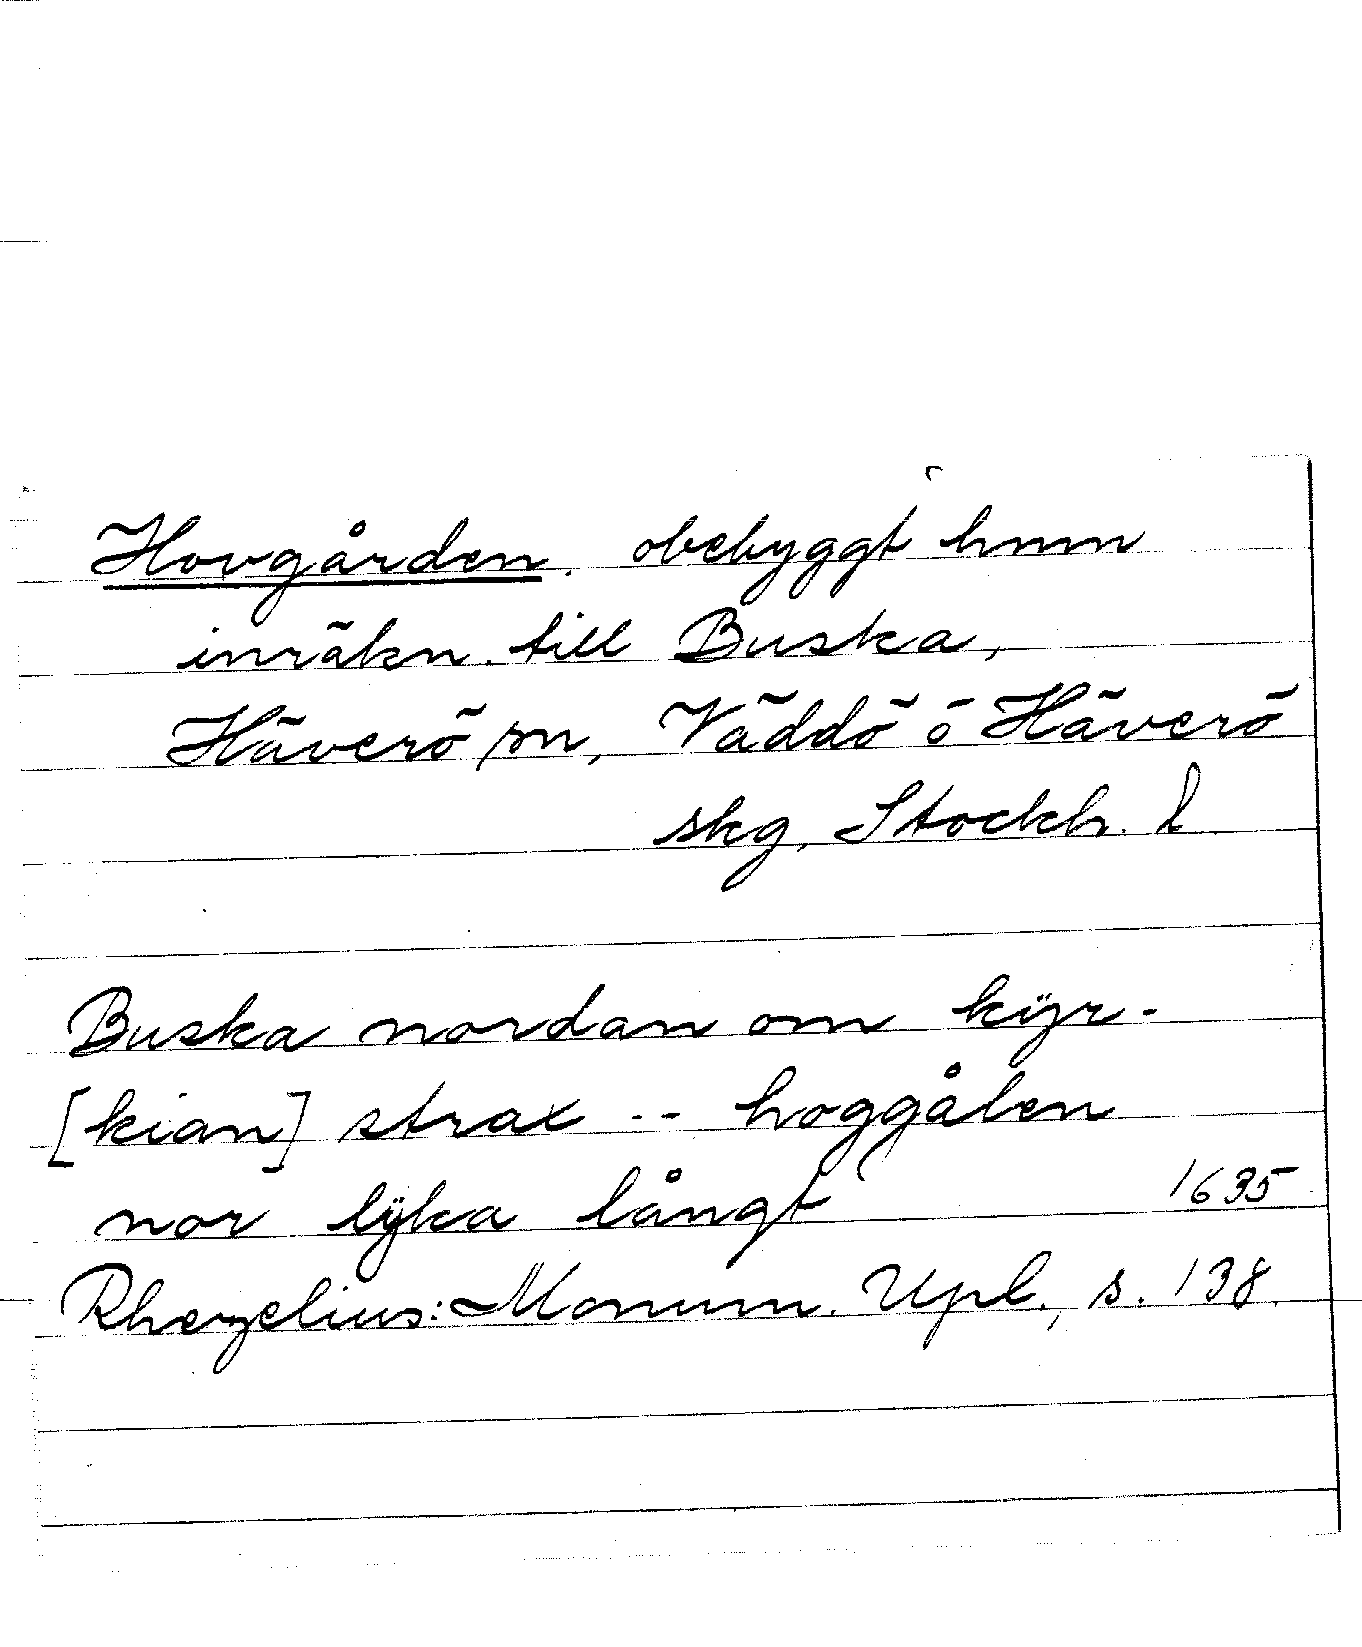 Hovgården. obebyggt hmn
inräkn. till Buska,
Häverö sn, Väddö o Häverö
skg, Stockh. l
Buska nordan om kÿr-
[kian] strax -- hoggålen
nor lÿka långt 1635
Rhezelius: Monum. Upl., s. 138.